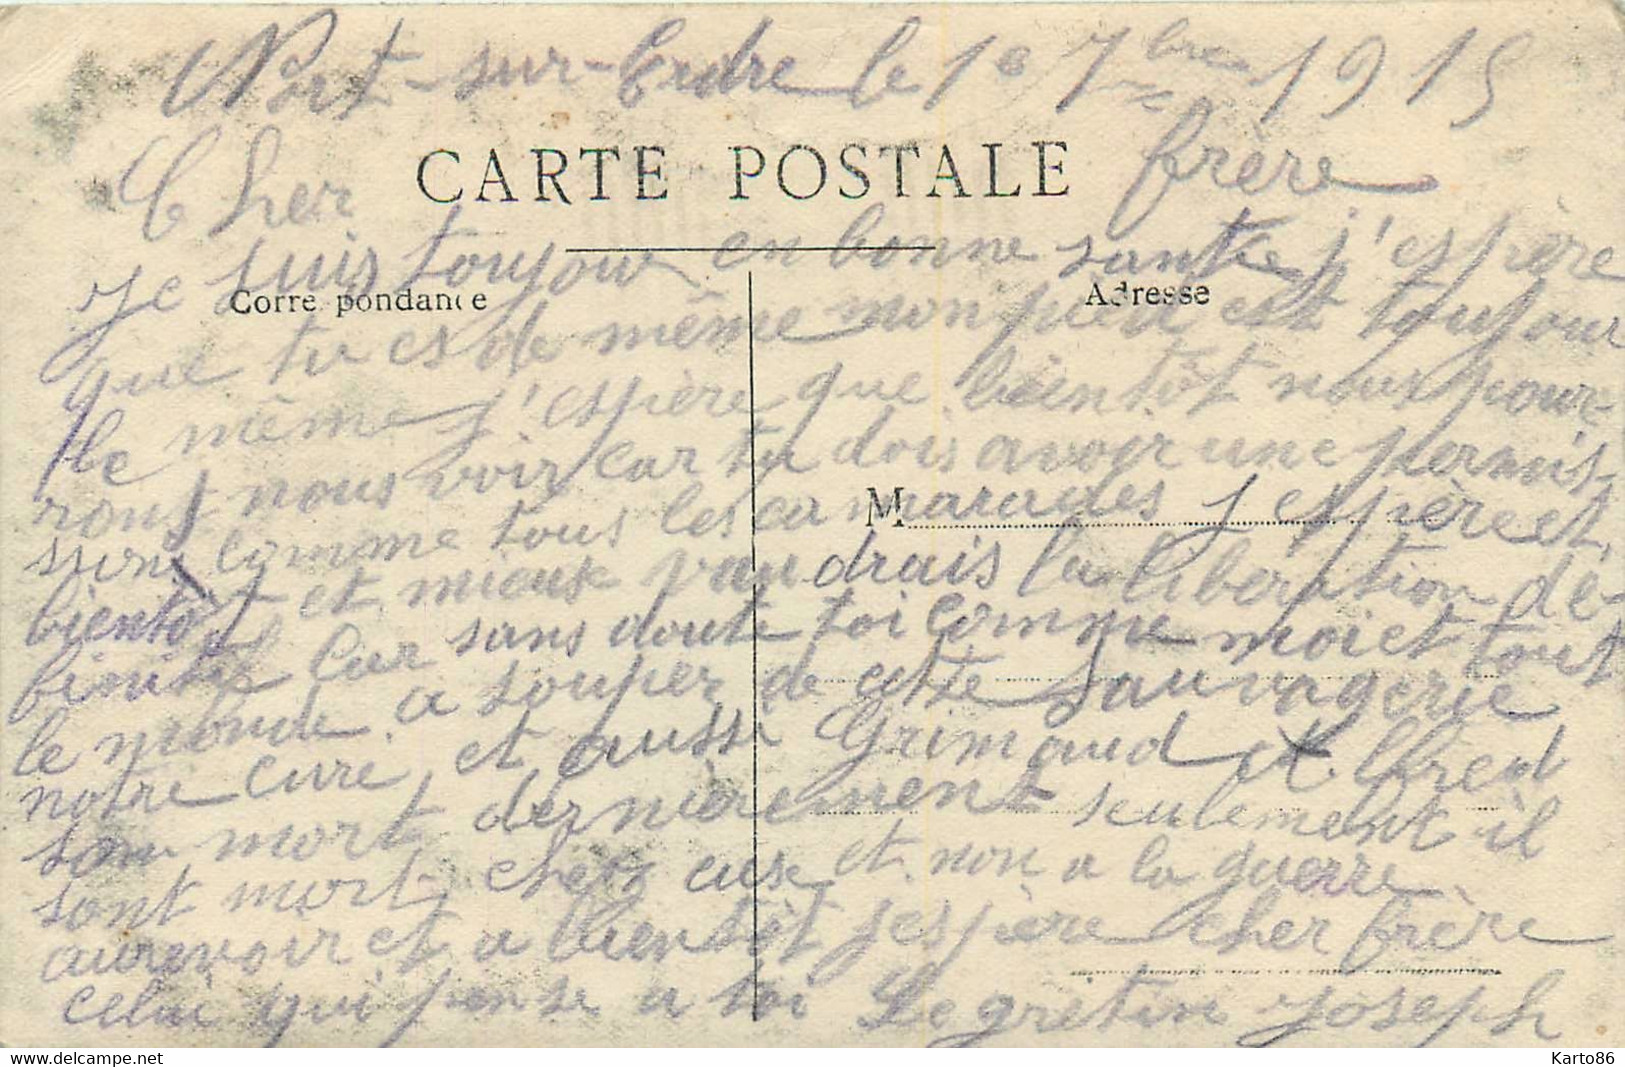 Nort-sur-Erdre le 1e 7bre 1915
CARTE POSTALE
Cher frère
je suis toujour en bonne santé j'espère
Correspondance
Adresse
que tu es de même mon pied est toujour
le même j'espère que bientôt nous pour-
rons nous voir car tu dois avoir une permis-
M
sion comme tous les camarades j'espère et
bientôt et mieux vaudrais la libération dé-
finitive car sans doute toi comme moi et tout
le monde a souper de cette sauvagerie
notre curé et aussi Grimaud
son mort dernièrement seulement il
sont mort chez euse et non a la guerre
aurevoir et a bientôt j'espère cher frère
celui qui pense a toi Legrétin Joseph
Karto86